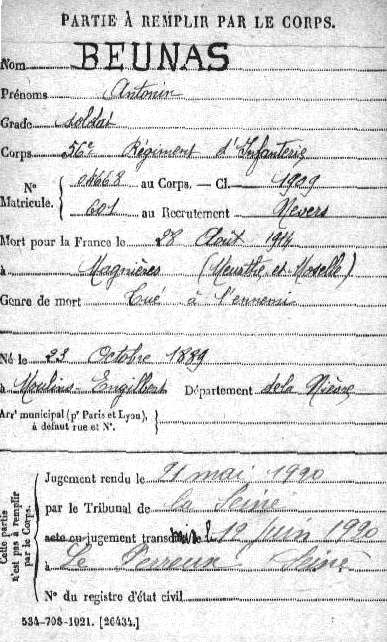 PARTIE À REMPLIR PAR LE CORPS.
Nom BEUNAS
Prénoms Antonin
Grade soldat
Corps 56e Régiment d'Infanterie
N° Matricule. { 04668 au Corps. — Cl. 1909
601 au Recrutement Nevers
Mort pour la France le 28 Août 1914
à Magnières (Meurthe et Moselle)
Genre de mort Tué à l'ennemi
Né le 23 Octobre 1889
à Moulins-Engilbert Département de la Nièvre
Arrt municipal (pr Paris et Lyon), à défaut rue et N°. }
Cette partie n'est pas à remplir par le Corps.
Jugement rendu le 21 mai 1920
par le Tribunal de la Seine
acte ou jugement transcrit le 12 Juin 1920
à Le Perreux Seine
N° du registre d'état civil
534-708-1021. [26434.]